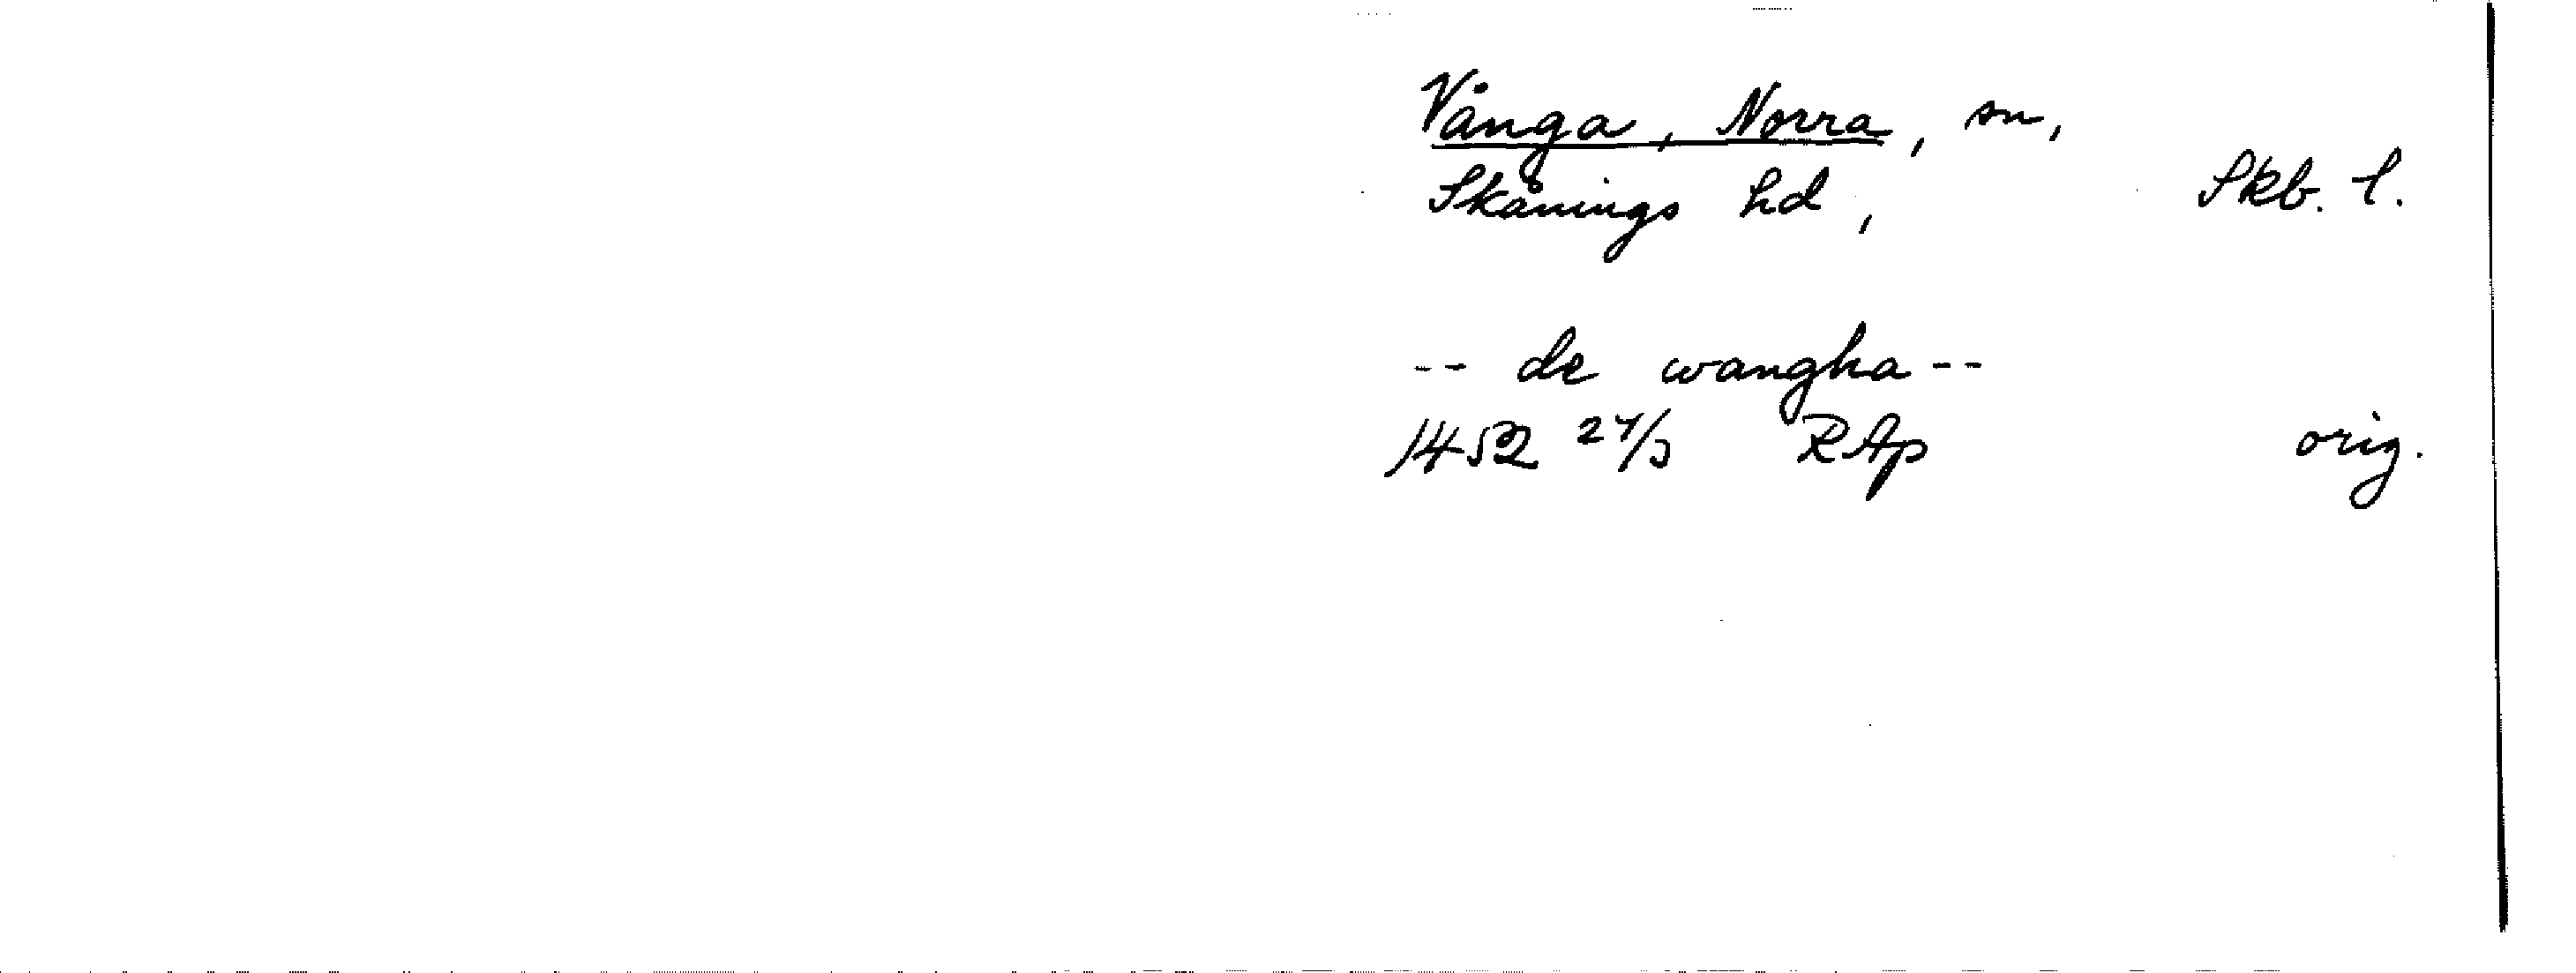 Vånga, Norra, sn,
Skånings hd, Skb. l.
-- de wangha --
1452 27/3 RAp orig.